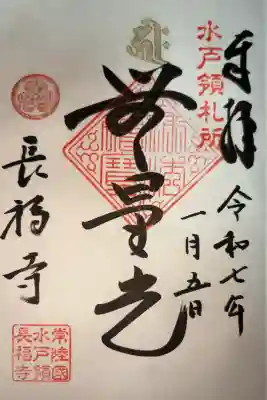 水戸領札所
奉拝
令和七年
一月五日
無量光
長福寺
常陸國
水戸領
長福寺